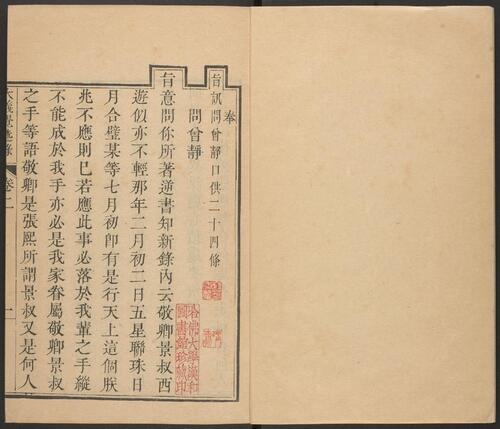 奉
旨訊問曾靜口供二十四條
問曾靜
旨意問你所著逆書知新錄內云敬卿景叔西
遊似亦不輕那年二月初二日五星聯珠日
月合璧某等七月初卽有是行天上這個朕
兆不應則已若應此事必落於我輩之手縱
不能成於我手亦必是我家眷屬敬卿景叔
之手等語敬卿是張熙所謂景叔又是何人
大義覺迷錄 卷二 一
哈佛大學漢和
圖書館珍藏印